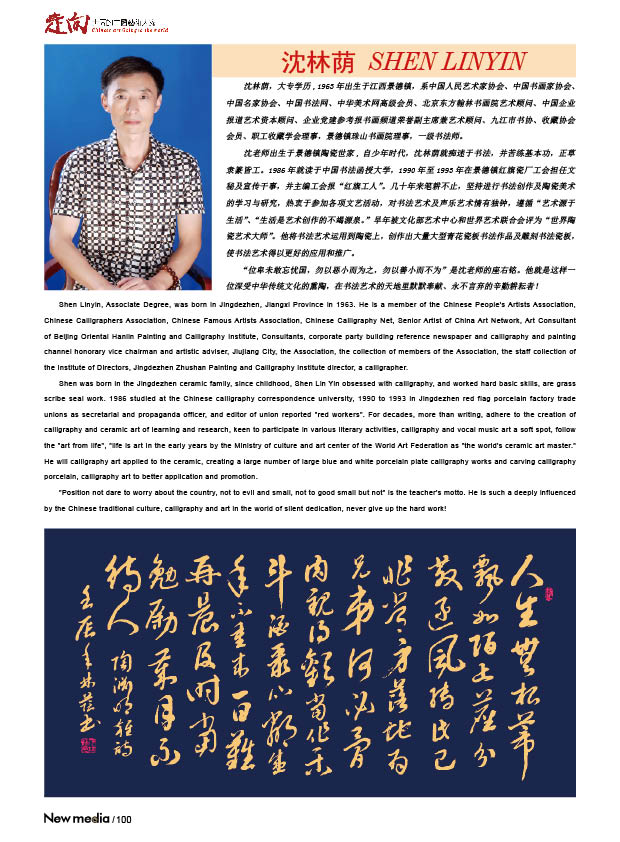 走向
Chinese art Going to the world
沈林荫 SHEN LINYIN
沈林荫,大专学历,1963年出生于江西景德镇,系中国人民艺术家协会、中国书画家协会、
中国名家协会、中国书法网、中华美术网高级会员、北京东方翰林书画院艺术顾问、中国企业
报道艺术资本顾问、企业党建参考报书画频道荣誉副主席兼艺术顾问、九江市书协、收藏协会
会员、职工收藏学会理事,景德镇珠山书画院理事,一级书法师。
沈老师出生于景德镇陶瓷世家,自少年时代,沈林荫就痴迷于书法,并苦练基本功,正草
隶篆皆工。1986年就读于中国书法函授大学,1990年至1993年在景德镇红旗瓷厂工会担任文
秘及宣传干事,并主编工会报“红旗工人”。几十年来笔耕不止,坚持进行书法创作及陶瓷美术
的学习与研究,热衷于参加各项文艺活动,对书法艺术及声乐艺术情有独钟,遵循“艺术源于
生活”、“生活是艺术创作的不竭源泉。”早年被文化部艺术中心和世界艺术联合会评为“世界陶
瓷艺术大师”。他将书法艺术运用到陶瓷上,创作出大量大型青花瓷板书法作品及雕刻书法瓷板,
使书法艺术得以更好的应用和推广。
“位卑未敢忘忧国,勿以恶小而为之,勿以善小而不为”是沈老师的座右铭。他就是这样一
位深受中华传统文化的熏陶,在书法艺术的天地里默默奉献、永不言弃的辛勤耕耘者!
Shen Linyin, Associate Degree, was born in Jingdezhen, Jiangxi Province in 1963. He is a member of the Chinese People's Artists Association,
Chinese Calligraphers Association, Chinese Famous Artists Association, Chinese Calligraphy Net, Senior Artist of China Art Network, Art Consultant
of Beijing Oriental Hanlin Painting and Calligraphy Institute, Consultants, corporate party building reference newspaper and calligraphy and painting
channel honorary vice chairman and artistic adviser, Jiujiang City, the Association, the collection of members of the Association, the staff collection of
the Institute of Directors, Jingdezhen Zhushan Painting and Calligraphy Institute director, a calligrapher.
Shen was born in the Jingdezhen ceramic family, since childhood, Shen Lin Yin obsessed with calligraphy, and worked hard basic skills, are grass
scribe seal work. 1986 studied at the Chinese calligraphy correspondence university, 1990 to 1993 in Jingdezhen red flag porcelain factory trade
unions as secretarial and propaganda officer, and editor of union reported "red workers". For decades, more than writing, adhere to the creation of
calligraphy and ceramic art of learning and research, keen to participate in various literary activities, calligraphy and vocal music art a soft spot, follow
the "art from life", "life is art in the early years by the Ministry of culture and art center of the World Art Federation as "the world's ceramic art master."
He will calligraphy art applied to the ceramic, creating a large number of large blue and white porcelain plate calligraphy works and carving calligraphy
porcelain, calligraphy art to better application and promotion.
"Position not dare to worry about the country, not to evil and small, not to good small but not" is the teacher's motto. He is such a deeply influenced
by the Chinese traditional culture, calligraphy and art in the world of silent dedication, never give up the hard work!
人生无根蒂
飘如陌上尘分
散逐风转此已
非常身落地为
兄弟何必骨
肉亲得欢当作乐
斗酒聚比邻盛
年不重来一日难
再晨及时当
勉励岁月不
待人 陶渊明杂诗
壬辰年林荫书
New media / 100